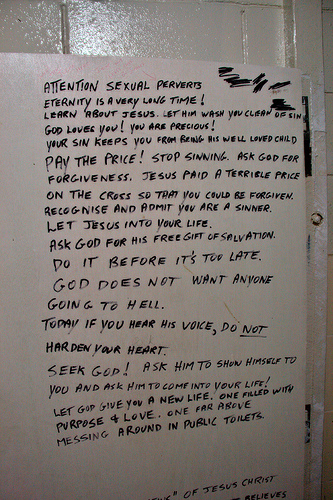 ATTENTION SEXUAL PERVERTS
ETERNITY IS A VERY LONG TIME!
LEARN ABOUT JESUS. LET HIM WASH YOU CLEAN OF SIN
GOD LOVES YOU! YOU ARE PRECIOUS!
YOUR SIN KEEPS YOU FROM BEING HIS WELL LOVED CHILD
PAY THE PRICE! STOP SINNING. ASK GOD FOR
FORGIVENESS. JESUS PAID A TERRIBLE PRICE
ON THE CROSS SO THAT YOU COULD BE FORGIVEN.
RECOGNISE AND ADMIT YOU ARE A SINNER.
LET JESUS INTO YOUR LIFE.
ASK GOD FOR HIS FREE GIFT OF SALVATION.
DO IT BEFORE IT'S TOO LATE.
GOD DOES NOT WANT ANYONE
GOING TO HELL.
TODAY IF YOU HEAR HIS VOICE, DO NOT
HARDEN YOUR HEART.
SEEK GOD! ASK HIM TO SHOW HIMSELF TO
YOU AND ASK HIM TO COME INTO YOUR LIFE!
LET GOD GIVE YOU A NEW LIFE. ONE FILLED WITH
PURPOSE & LOVE. ONE FAR ABOVE
MESSING AROUND IN PUBLIC TOILETS.
OF JESUS CHRIST
BELIEVES